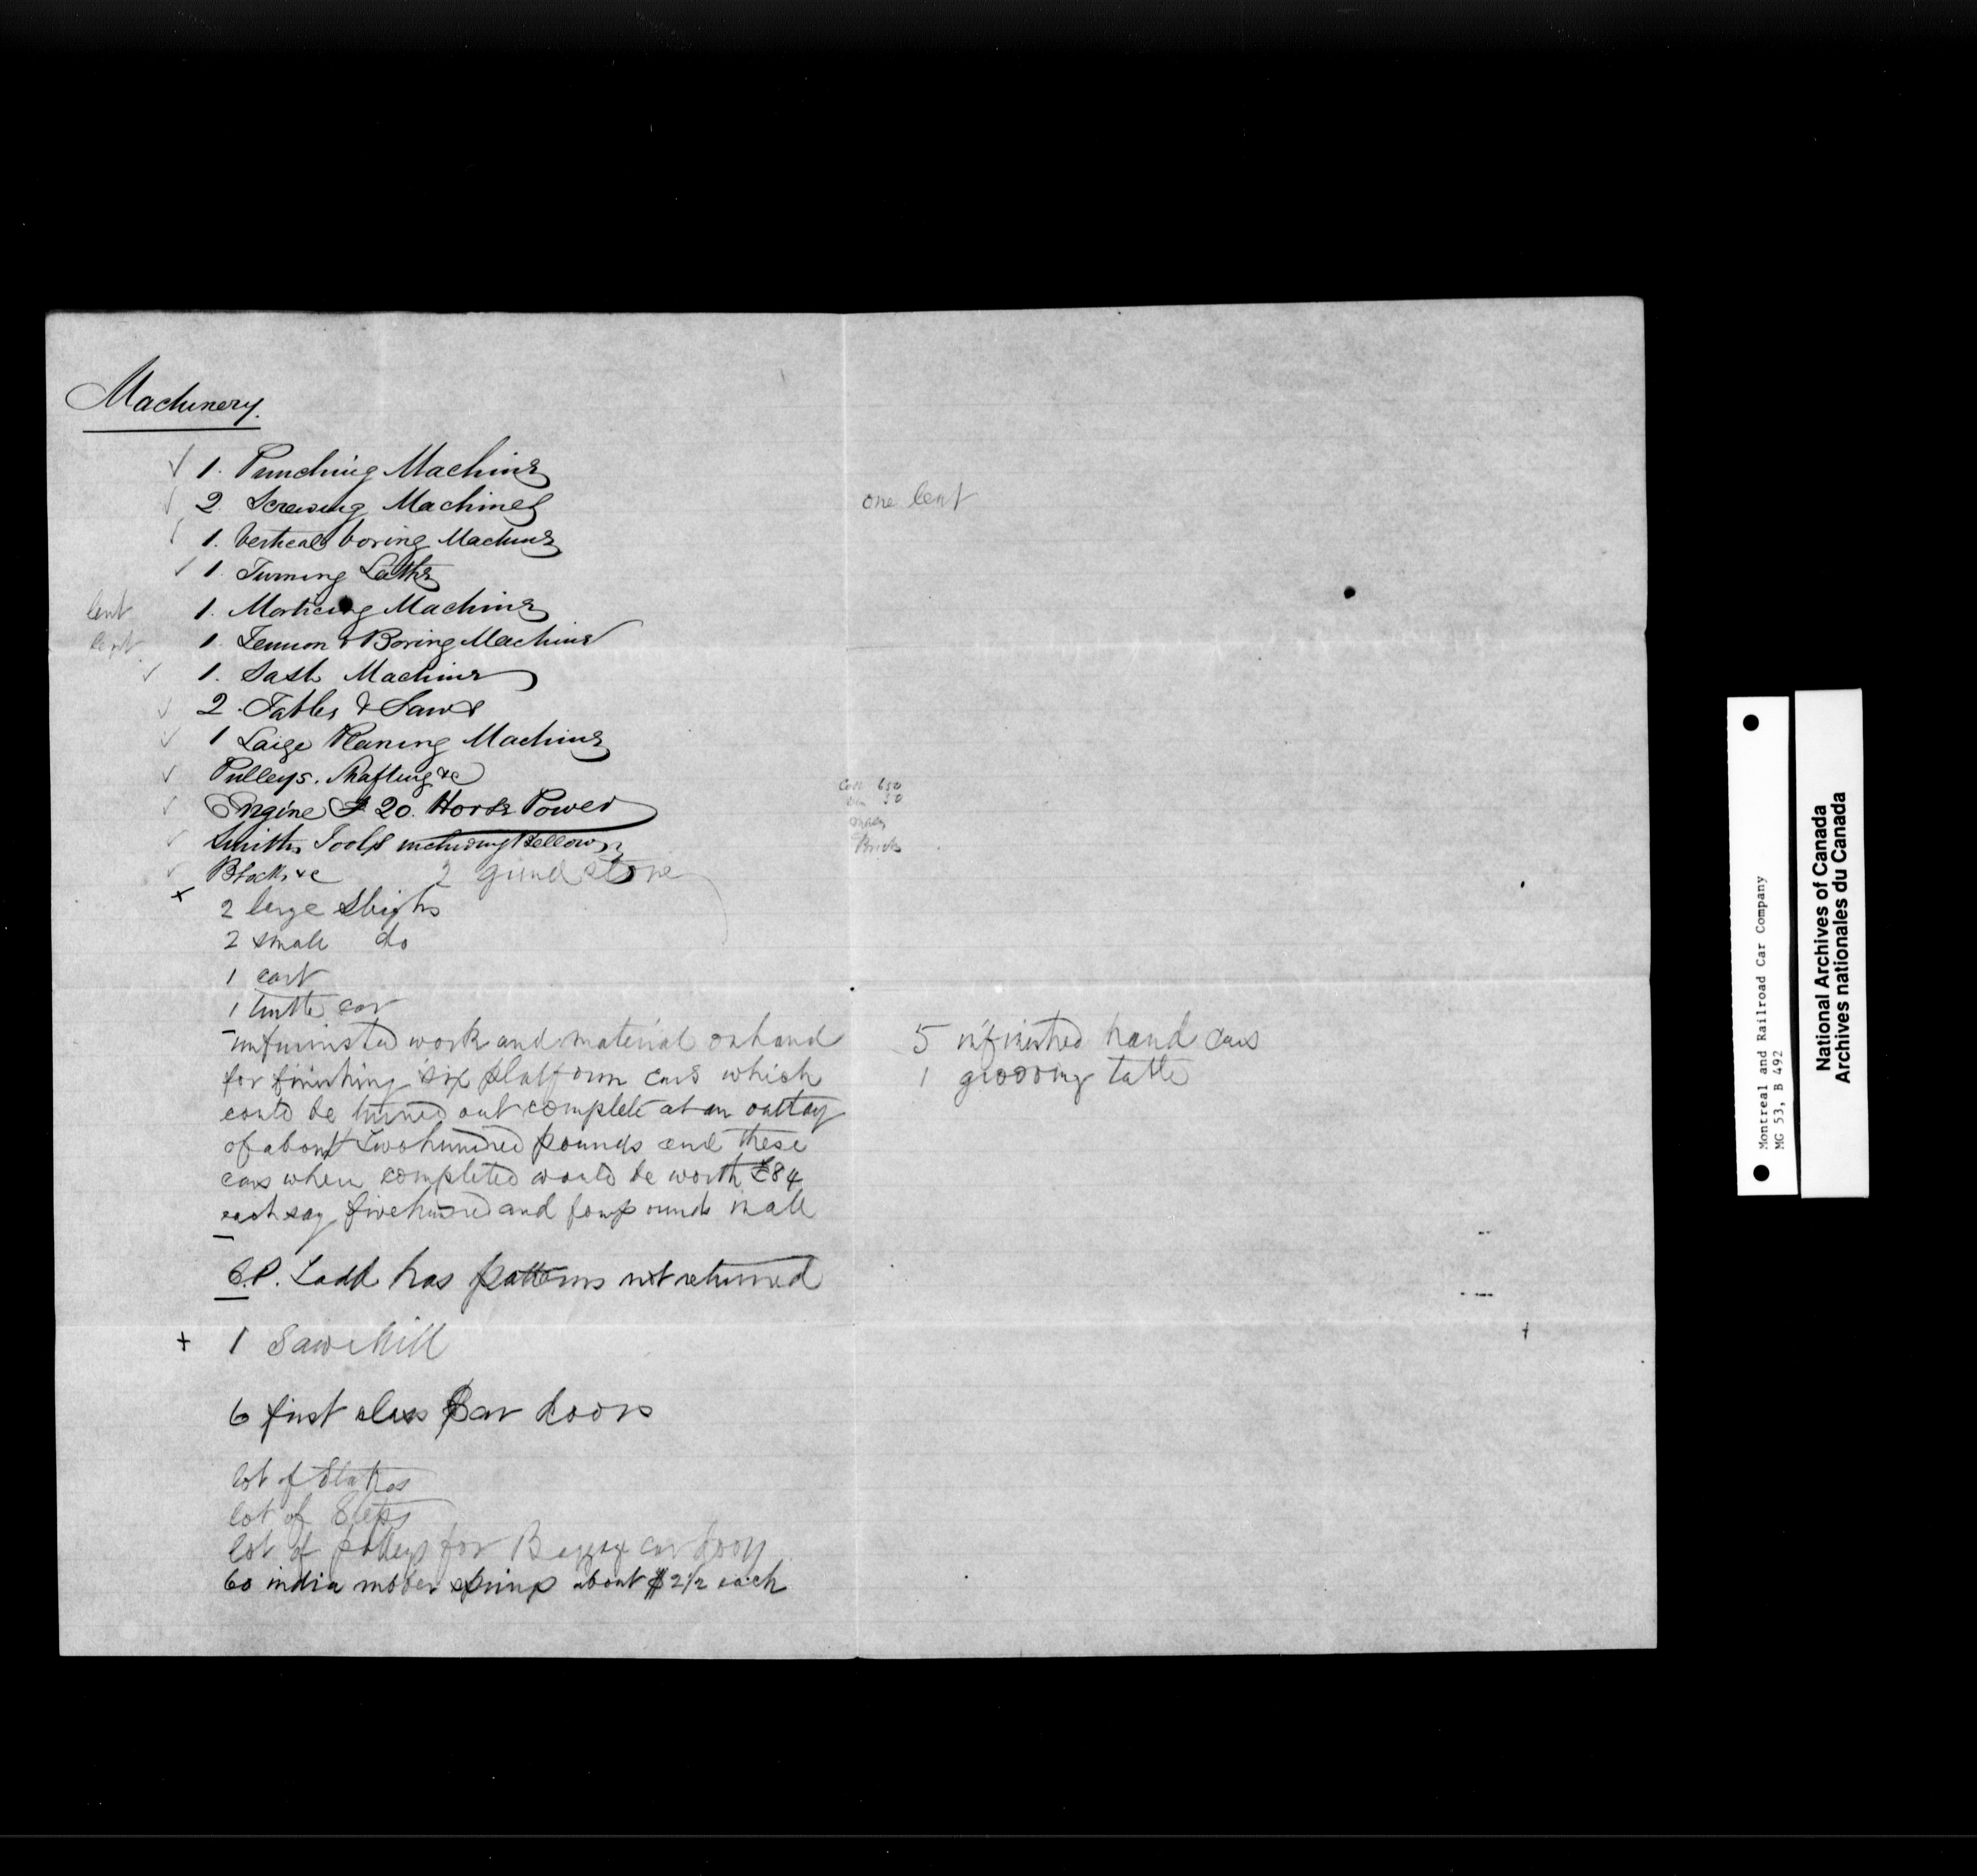 Machinery.
√ 1. Punching Machine
√ 2. Screwing Machines
one lent
√ 1. Vertical boring Machine
√ 1. Turning Lathe
lent 1. Morticing Machine
lent 1. Tennon & Boring Machine
√ 1. Sash Machine
√ 2. Tables & Saws
√ 1 Large Planing Machine
√ Pulleys. Shafting &c
√ Engine of 20. Horse Power
√ Smiths Tools including Bellows
Bricks
√ Blocks &c 2 grind stone
x 2 large Sleighs
2 small do
1 cart
1 car
unfinished work and material on hand
for finishing six platform cars which
could be turned out complete at an outlay
of about Two hundred pounds and these
cars when completed would be worth £84
each say five hundred and four pounds in all
5 unfinished hand cars
1 grooving table
C.P. Ladd has patterns not returned
+ 1 Saw Mill
6 first class Car doors
lot of Stakes
lot of Steps
lot of for Baggage car door
60 india rubber springs about $2 1/2 each
Montreal and Railroad Car Company
MG 53, B 492
National Archives of Canada
Archives nationales du Canada